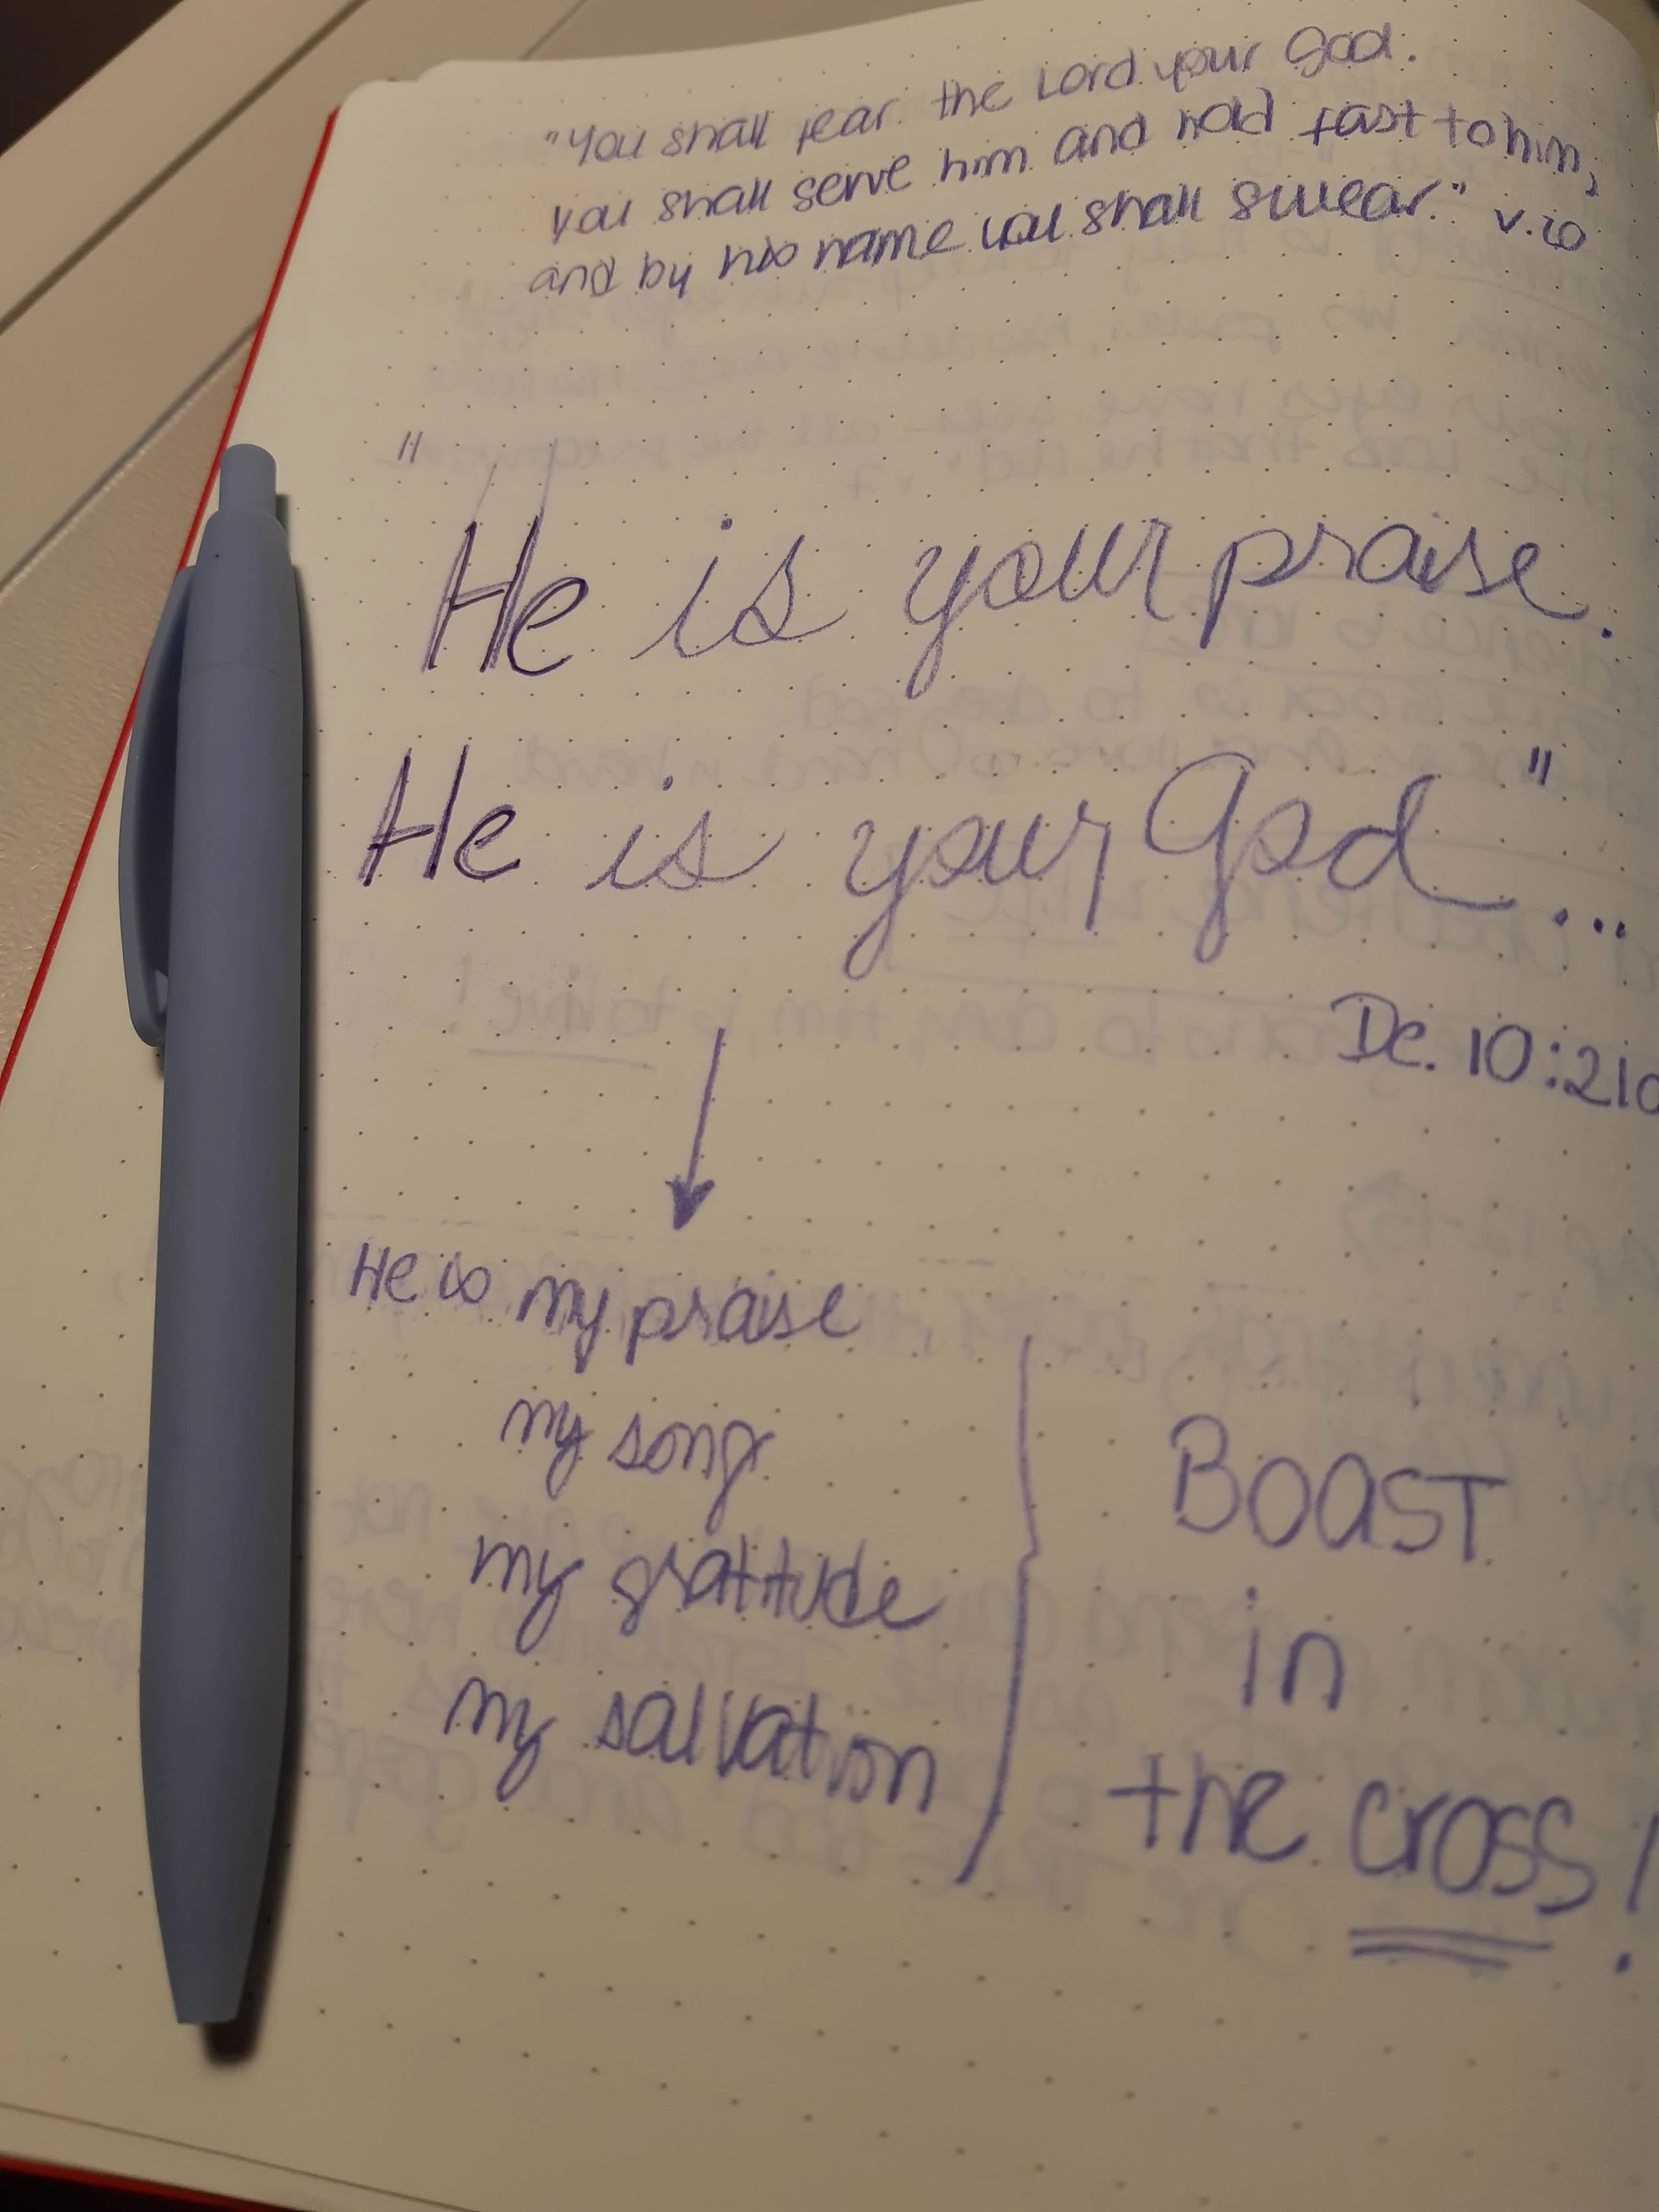 "You shall fear the Lord your God.
you shall serve him and hold fast to him,
and by his name you shall swear." v.20
"
He is your praise.
He is your God"...
De. 10:21a
He is my praise
my song
my gratitude
my salvation
BOAST
in
the cross!